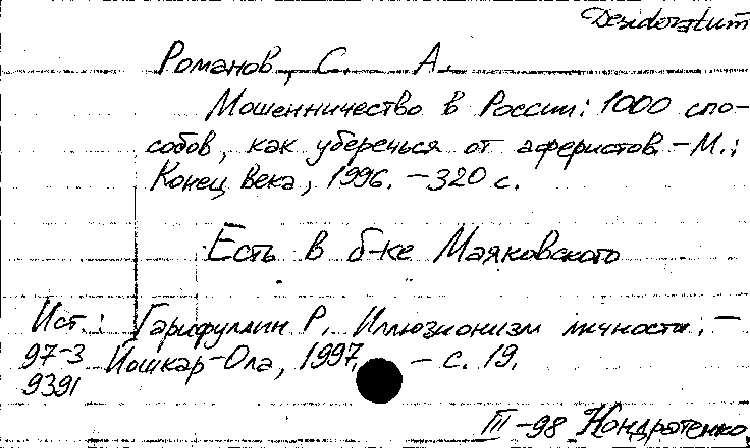 Desideratum
Романов, С. А.
Мошенничество в России: 1000 спо-
собов, как уберечься от аферистов. – М.:
Конец века, 1996. – 320 с.
Есть в б-ке Маяковского
Ист.: Гарифуллин Р. Иллюзионизм личности. –
97-3 Йошкар-Ола, 1997. – с. 19.
9391
III – 98 Кондратенко